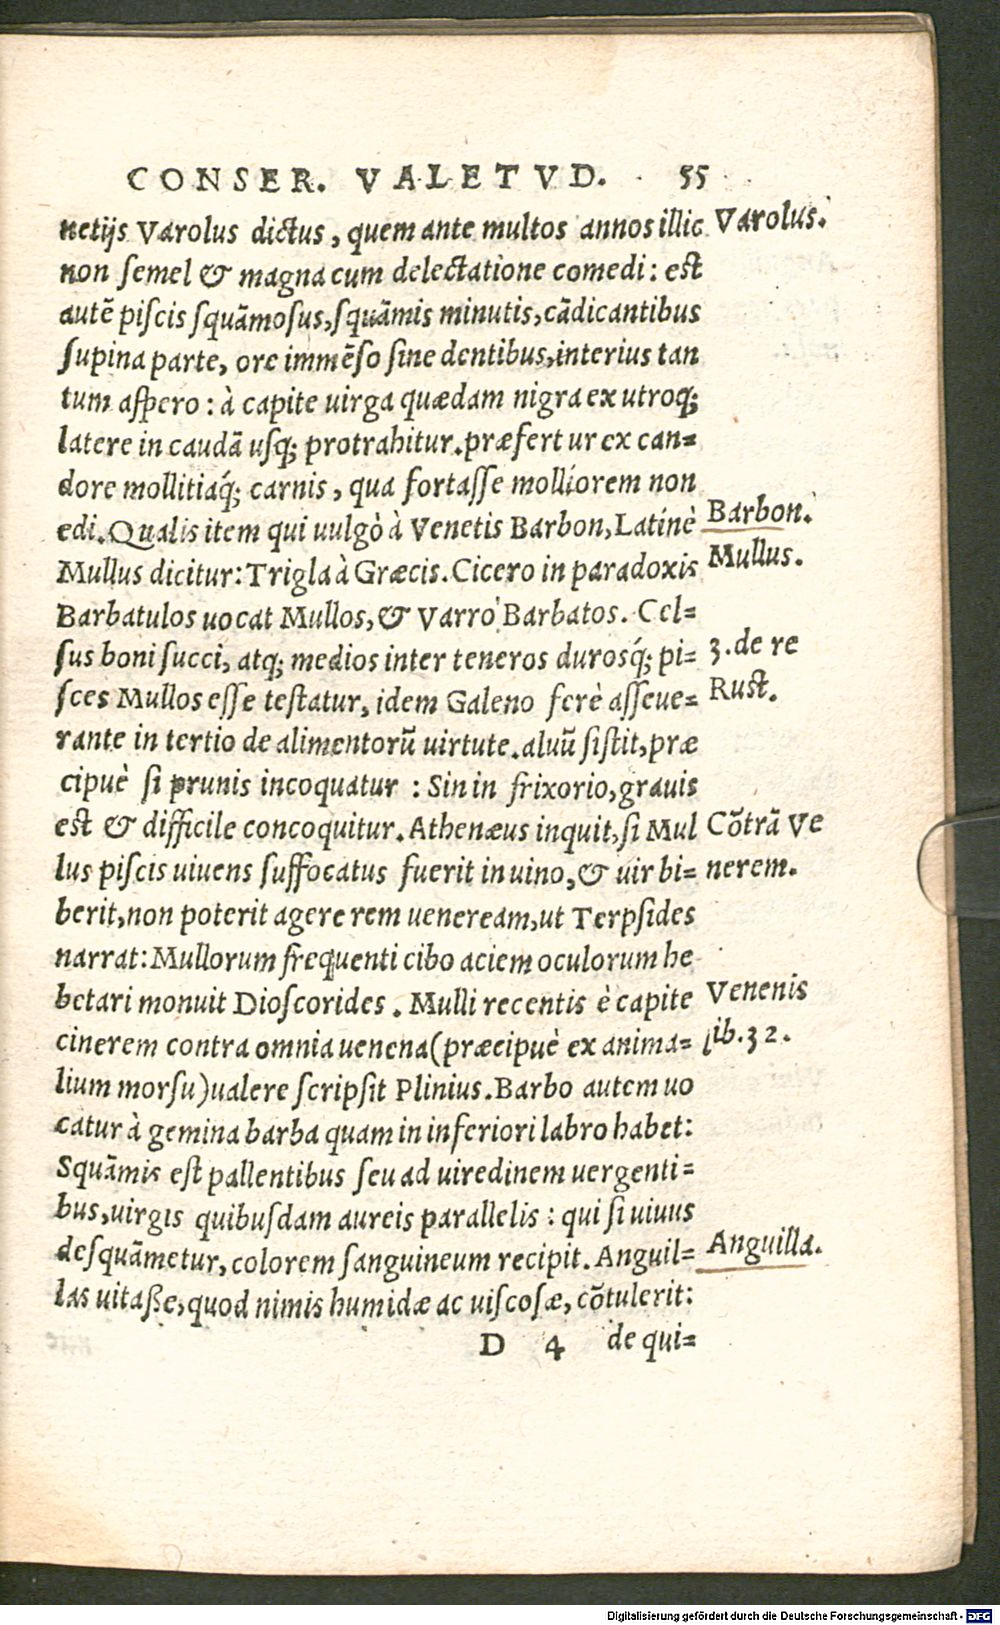 CONSER. VALETVD. 55
netijs Varolus dictus, quem ante multos annos illic
Varolus.
non semel & magna cum delectatione comedi: est
autē piscis squāmosus, squāmis minutis, cādicantibus
supina parte, ore immēso sine dentibus, interius tan
tum aspero: à capite uirga quædam nigra ex utroq;
latere in caudā usq; protrahitur. præfertur ex can=
dore mollitiaq́; carnis, qua fortasse molliorem non
edi. Qualis item qui uulgò à Venetis Barbon, Latínè
Barbon.
Mullus dicitur: Trigla à Græcis. Cicero in paradoxis
Mullus.
Barbatulos uocat Mullos, & Varro Barbatos. Cel=
sus boni succi, atq; medios inter teneros durosq́; pi=
3. de re
sces Mullos esse testatur, idem Galeno ferè asseue=
Rust.
rante in tertio de alimentorū uirtute. aluū sistit, præ
cipuè si prunis incoquatur : Sin in frixorio, grauis
est & difficile concoquitur. Athenæus inquit, si Mul
Cōtrā Ve
lus piscis uiuens suffocatus fuerit in uino, & uir bi=
nerem.
berit, non poterit agere rem ueneream, ut Terpsides
narrat: Mullorum frequenti cibo aciem oculorum he
betari monuit Dioscorides. Mulli recentis è capite
Venenis
cinerem contra omnia uenena (præcipuè ex anima=
lib. 32.
lium morsu) ualere scripsit Plinius. Barbo autem uo
catur à gemina barba quam in inferiori labro habet:
Squāmis est pallentibus seu ad uiredinem uergenti=
bus, uirgis quibusdam aureis parallelis : qui si uiuus
desquāmetur, colorem sanguineum recipit. Anguil=
Anguilla.
las uitaße, quod nimis humidæ ac uiscosæ, cōtulerit:
D 4 de qui=
Digitalisierung gefördert durch die Deutsche Forschungsgemeinschaft - DFG